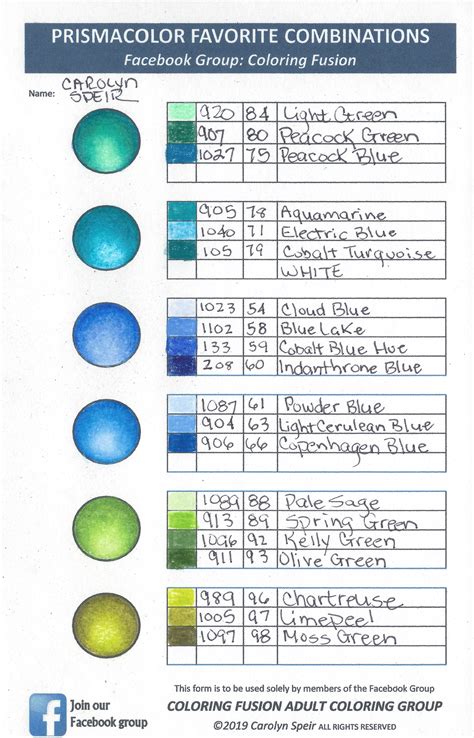 PRISMACOLOR FAVORITE COMBINATIONS
Facebook Group: Coloring Fusion
Name: CAROLYN SPEIR
920 84 Light Green
907 80 Peacock Green
1027 75 Peacock Blue
905 78 Aquamarine
1040 71 Electric Blue
105 79 Cobalt Turquoise
WHITE
1023 54 Cloud Blue
1102 58 Blue Lake
133 59 Cobalt Blue Hue
208 60 Indanthrone Blue
1087 61 Powder Blue
904 63 Light Cerulean Blue
906 66 Copenhagen Blue
1089 88 Pale Sage
913 89 Spring Green
1096 92 Kelly Green
911 93 Olive Green
989 96 Chartreuse
1005 97 Limepeel
1097 98 Moss Green
This form is to be used solely by members of the Facebook Group
f Join our
Facebook group
COLORING FUSION ADULT COLORING GROUP
©2019 Carolyn Speir ALL RIGHTS RESERVED